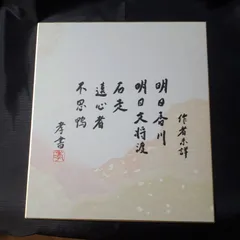 作者未詳
明日香川
明日文将渡
石走
遠心者
不思鴨
孝書